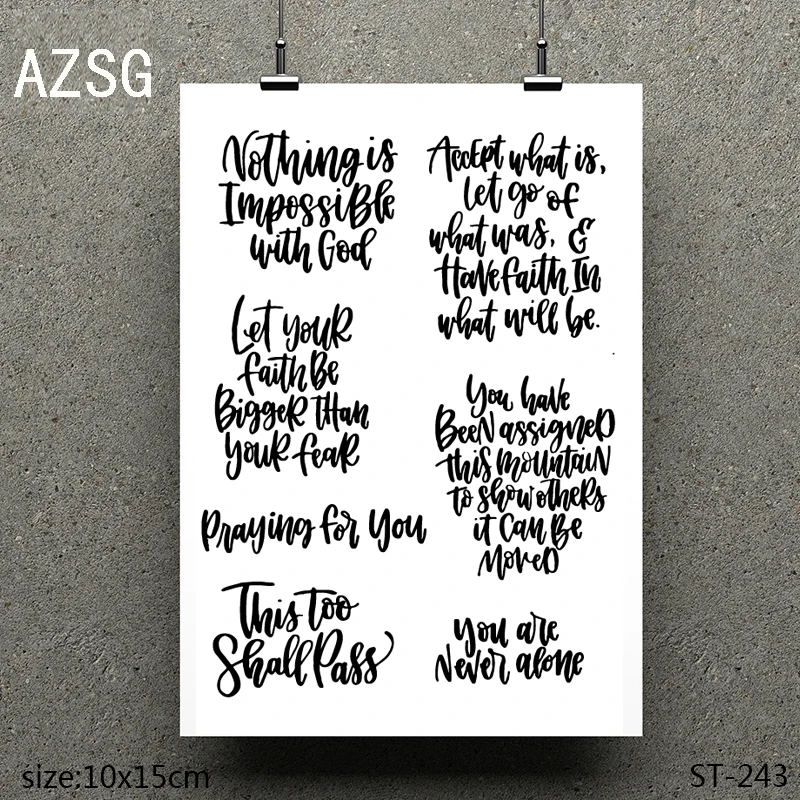 AZSG
Nothing is
Impossible
with God
Let your
faith Be
Bigger than
your fear
Praying for you
This too
Shall Pass
Accept what is,
let go of
what was, &
Have faith In
what will be.
You have
Been assigned
this mountain
to show others
it Can Be
Moved
you are
Never alone
size:10x15cm
ST-243